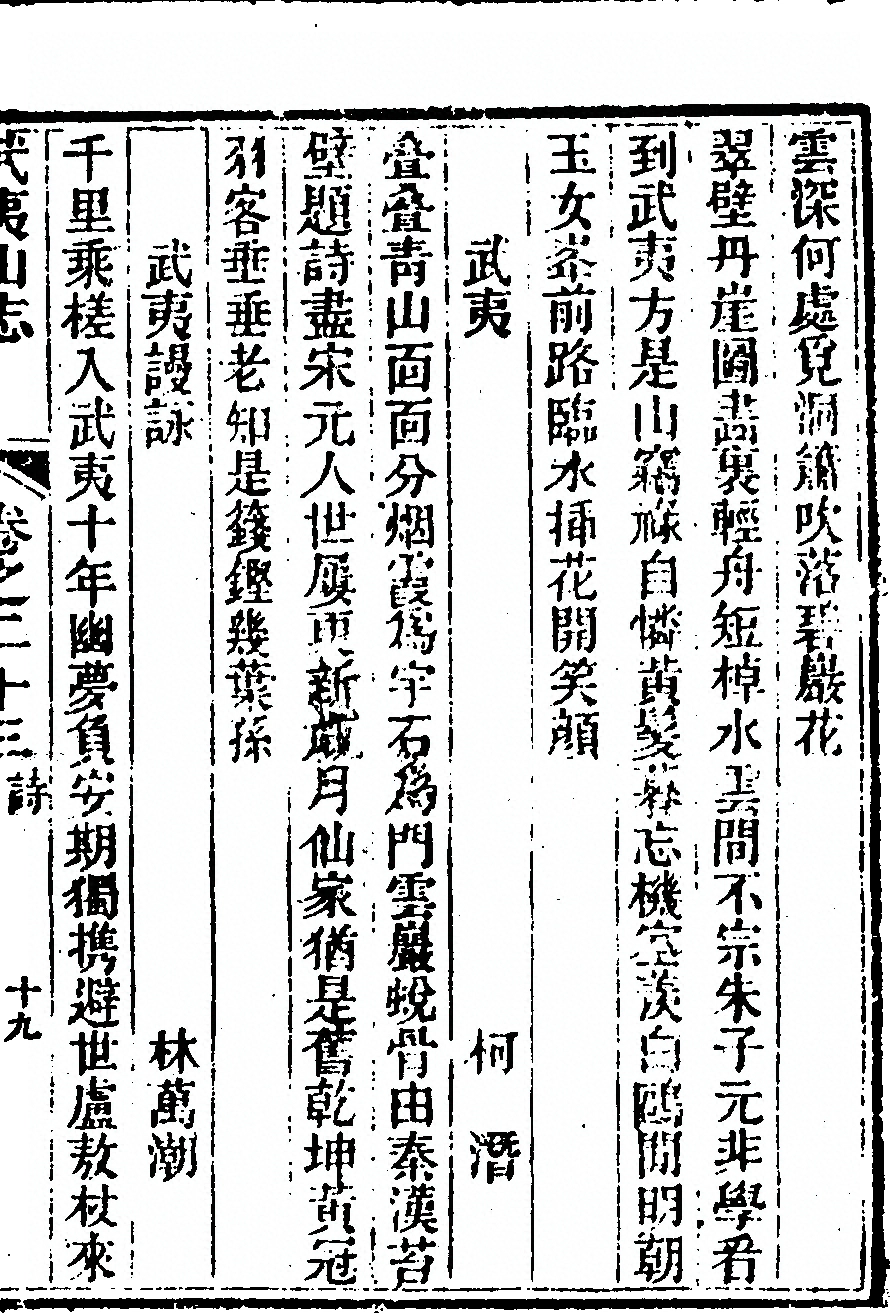 雲深何處覓洞簫吹落碧巖花
翠壁丹崖圖畵裏輕舟短棹水雲間不宗朱子元非學看
到武夷方是山竊祿自憐黃髮暮忘機空羨白鷗閒明朝
玉女峯前路臨水揷花開笑顔
武夷 柯潛
疊疊靑山面面分烟霞爲宇石爲門雲巖蛻骨由秦漢苔
壁題詩盡宋元人世屢更新歲月仙家猶是舊乾坤黃冠
羽客垂垂老知是籛鏗幾葉孫
武夷謾詠 林萬潮
千里乘槎入武夷十年幽夢負安期獨携避世盧敖杖來
武夷山志 卷之二十三 詩 十九